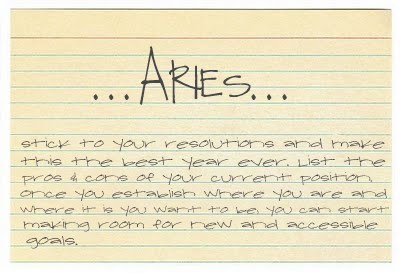 ...ARIES...
stick to your resolutions and make
this the best year ever. List the
pros & cons of your current position.
once you establish where you are and
where it is you want to be, you can start
making room for new and accessible
goals.